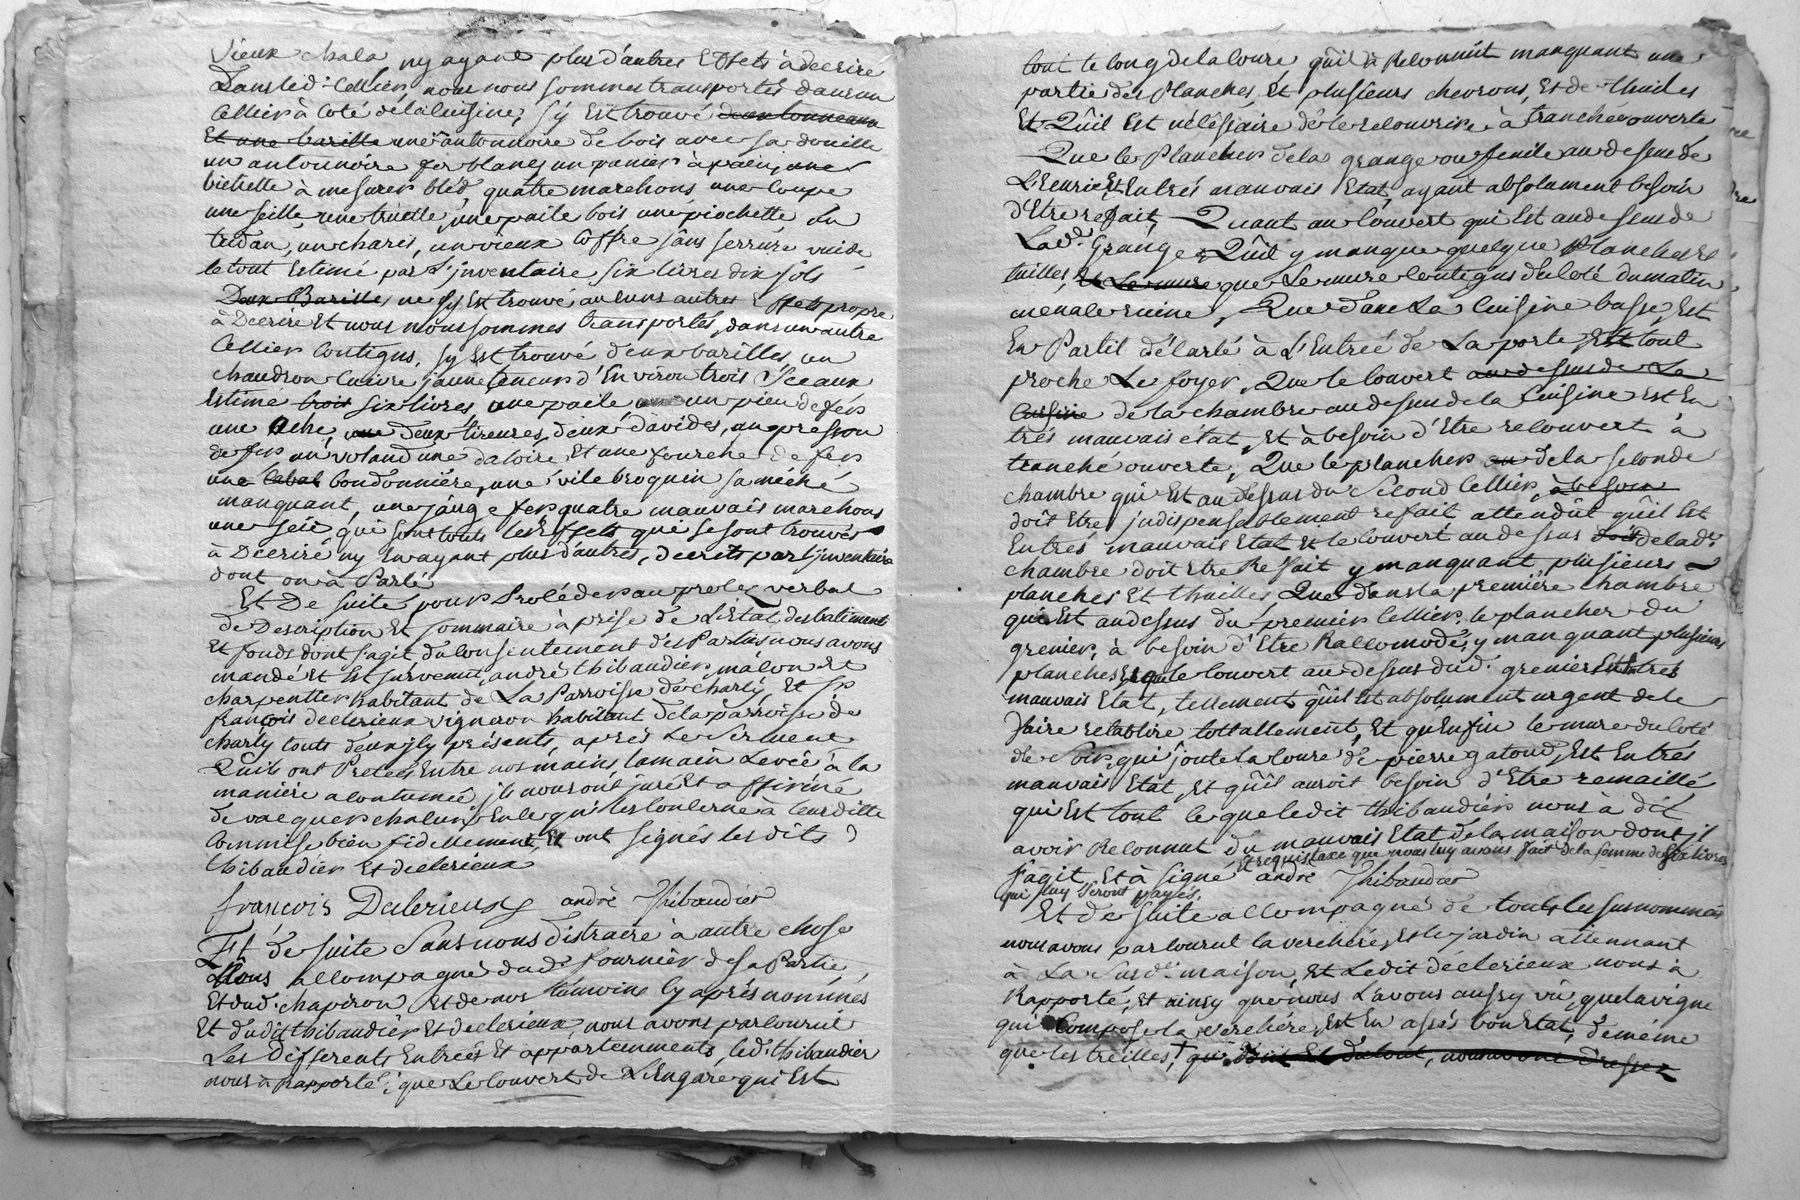 Vieux chala ny ayant plus d'autres Effets à decrire
Dans led. Cellier, nous nous sommes transportés dans un
Cellier à Coté de la Cuisine, s'y Est trouvé deux tonneaux
Et une barille une antonnoire de bois avec sa douille
un antonnoire fer blanc, un panier à pain, une
bichette à mesurer bled, quatre marchons une Coupe
une seille, une truelle, une paile bois une piochette un
un charis, un vieux Coffre sans serrure vuide
le tout Estimé par L'jnventaire six livres dix sols
Deux Barilles, ne s'y Est trouvé aucuns autres Effets propre
à Decrire Et nous nous sommes transportés, dans un autre
Cellier Contigus, s'y Est trouvé deux barilles, un
chaudron Cuivre jaune teneur d'Environ trois Sceaux
Estimé trois six livres, une paile un pieu de fer
une ache, une deux tireures, deux davides, un presson
de fer un voland une daloire, Et une fourche de fer
une Cabat boudonnière, une vilebroquin sa méché
manquant, une jauge fer quatre mauvais marchons
une seie, qui sont touts les Effets qui se sont trouvés
à Decrire ny En ayant plus d'autres, decrits par l'jnventaire
dont on à Parlé
Et De suite pour Procéder au proces verbal
de Description Et sommaire à prise de L'Etat des batiments
Et fonds dont s'agit du Consentement des Parties nous avons
mandé et Est survenu, andré thibaudier, maçon et
charpentier habitant de La Parroisse de charly, Et sr
françois declerieux vigneron habitant de la parroisse de
charly touts deux jly présents, après Le Serment
Quils ont Pretés Entre nos mains la main Levée à la
manière accoutumée, jls nous ont juré Et affirmé
de vacquer chacun En ce qui les Concerne à leur ditte
Commise bien fidellement, Et ont signés les dits
thibaudier Et declerieux
françois Declerieux andré Thibaudier
Et de suite Sans nous distraire à autre chose
Nous accompagné dud. fournier de sa Partie,
Et dud. chapiron Et de nos temoins Cy après nommés
Et dudit thibaudier Et declerieux, nous avons parcouru
Les Différents Entrées Et appartements, led. thibaudier
nous à Rapporté, que Le Couvert de L'Engare qui Est
tout le long de la Coure qu'il à Reconnut manquant une
partie des Planches, Et plusieurs chevrons, Et de Thuiles
Et Qu'il Est nécéssaire de le recouvrire à tranchée ouverte
Que le Plancher de la grange ou fenile au dessus de
L'Ecurie, Et En trés mauvais Etat, ayant absolument besoin
d'Etre refait, Quant au Couvert qui Est au dessus de
Lad. Grange, Qu'il y manque quelque Planches Et
tuilles, Et Le mure que Le mure Contigus du Coté du matin
menale ruine, Que dans La Cuisine basse, Est
En Partil décarlé à L'Entrée de La porte, Et tout
proche Le foyer, Que le Couvert au dessus de La
Cuisine de la chambre au dessus de la Cuisine Est En
trés mauvais état, Et à besoin d'Etre recouvert à
tranché ouverte, Que le plancher au de la seconde
chambre qui Est au Dessus du Second Cellier, à besoin
doit Etre jndispensablement refait attendût qu'il Est
En trés mauvais Etat Et le Couvert au dessus doit de lad.
chambre doit Etre Refait y manquant plusieurs
planches Et thuilles, Que dans la première chambre
qui Est au dessus du premier Cellier, le plancher du
grenier, à besoin d'Etre Raccomodé, y manquant plusieurs
planches, Et que le Couvert au dessus dud. grenier Est En trés
mauvais Etat, tellement qu'il Est absolument urgent de le
faire retablire tottallement, Et qu'Enfin le mure du Coté
de Soir, qui joute La Coure de pierre gatoud, Est En trés
mauvais Etat, Et qu'il auroit besoin d'Etre remaillé
qui Est tout Ce que ledit thibaudier nous à dit
avoir Reconnut du mauvais Etat de la maison dont jl
s'agit, Et à signé Et requis taxe que nous luy avons fait de la somme de six livres
qui luy Seront payés. andré Thibaudier
Et De Suite accompagné de touts les surnommés
nous avons parcourut la verchère, Et le jardin attennant
à La Susd. maison, Et Ledit déclerieux nous à
Rapporté, Et ainsy que nous L'avons aussy vû, que la vigne
qui Compose la verchère, Est En assés bon Etat, de même
que les treilles, † qui Est du tout, nous avons dressez